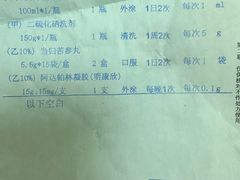 100ml*1/瓶 1 瓶 外涂 1日2次 每次1 ml
(甲) 二硫化硒洗剂
150g*1/瓶 1 瓶 清洗 1周2次 每次5 g
(乙10%) 当归苦参丸
5.6g*15袋/盒 2 盒 口服 1日2次 每次1 袋
(乙10%) 阿达帕林凝胶(明康欣)
15g:15mg/支 1 支 外涂 每晚1次 每次0.1g
以下空白